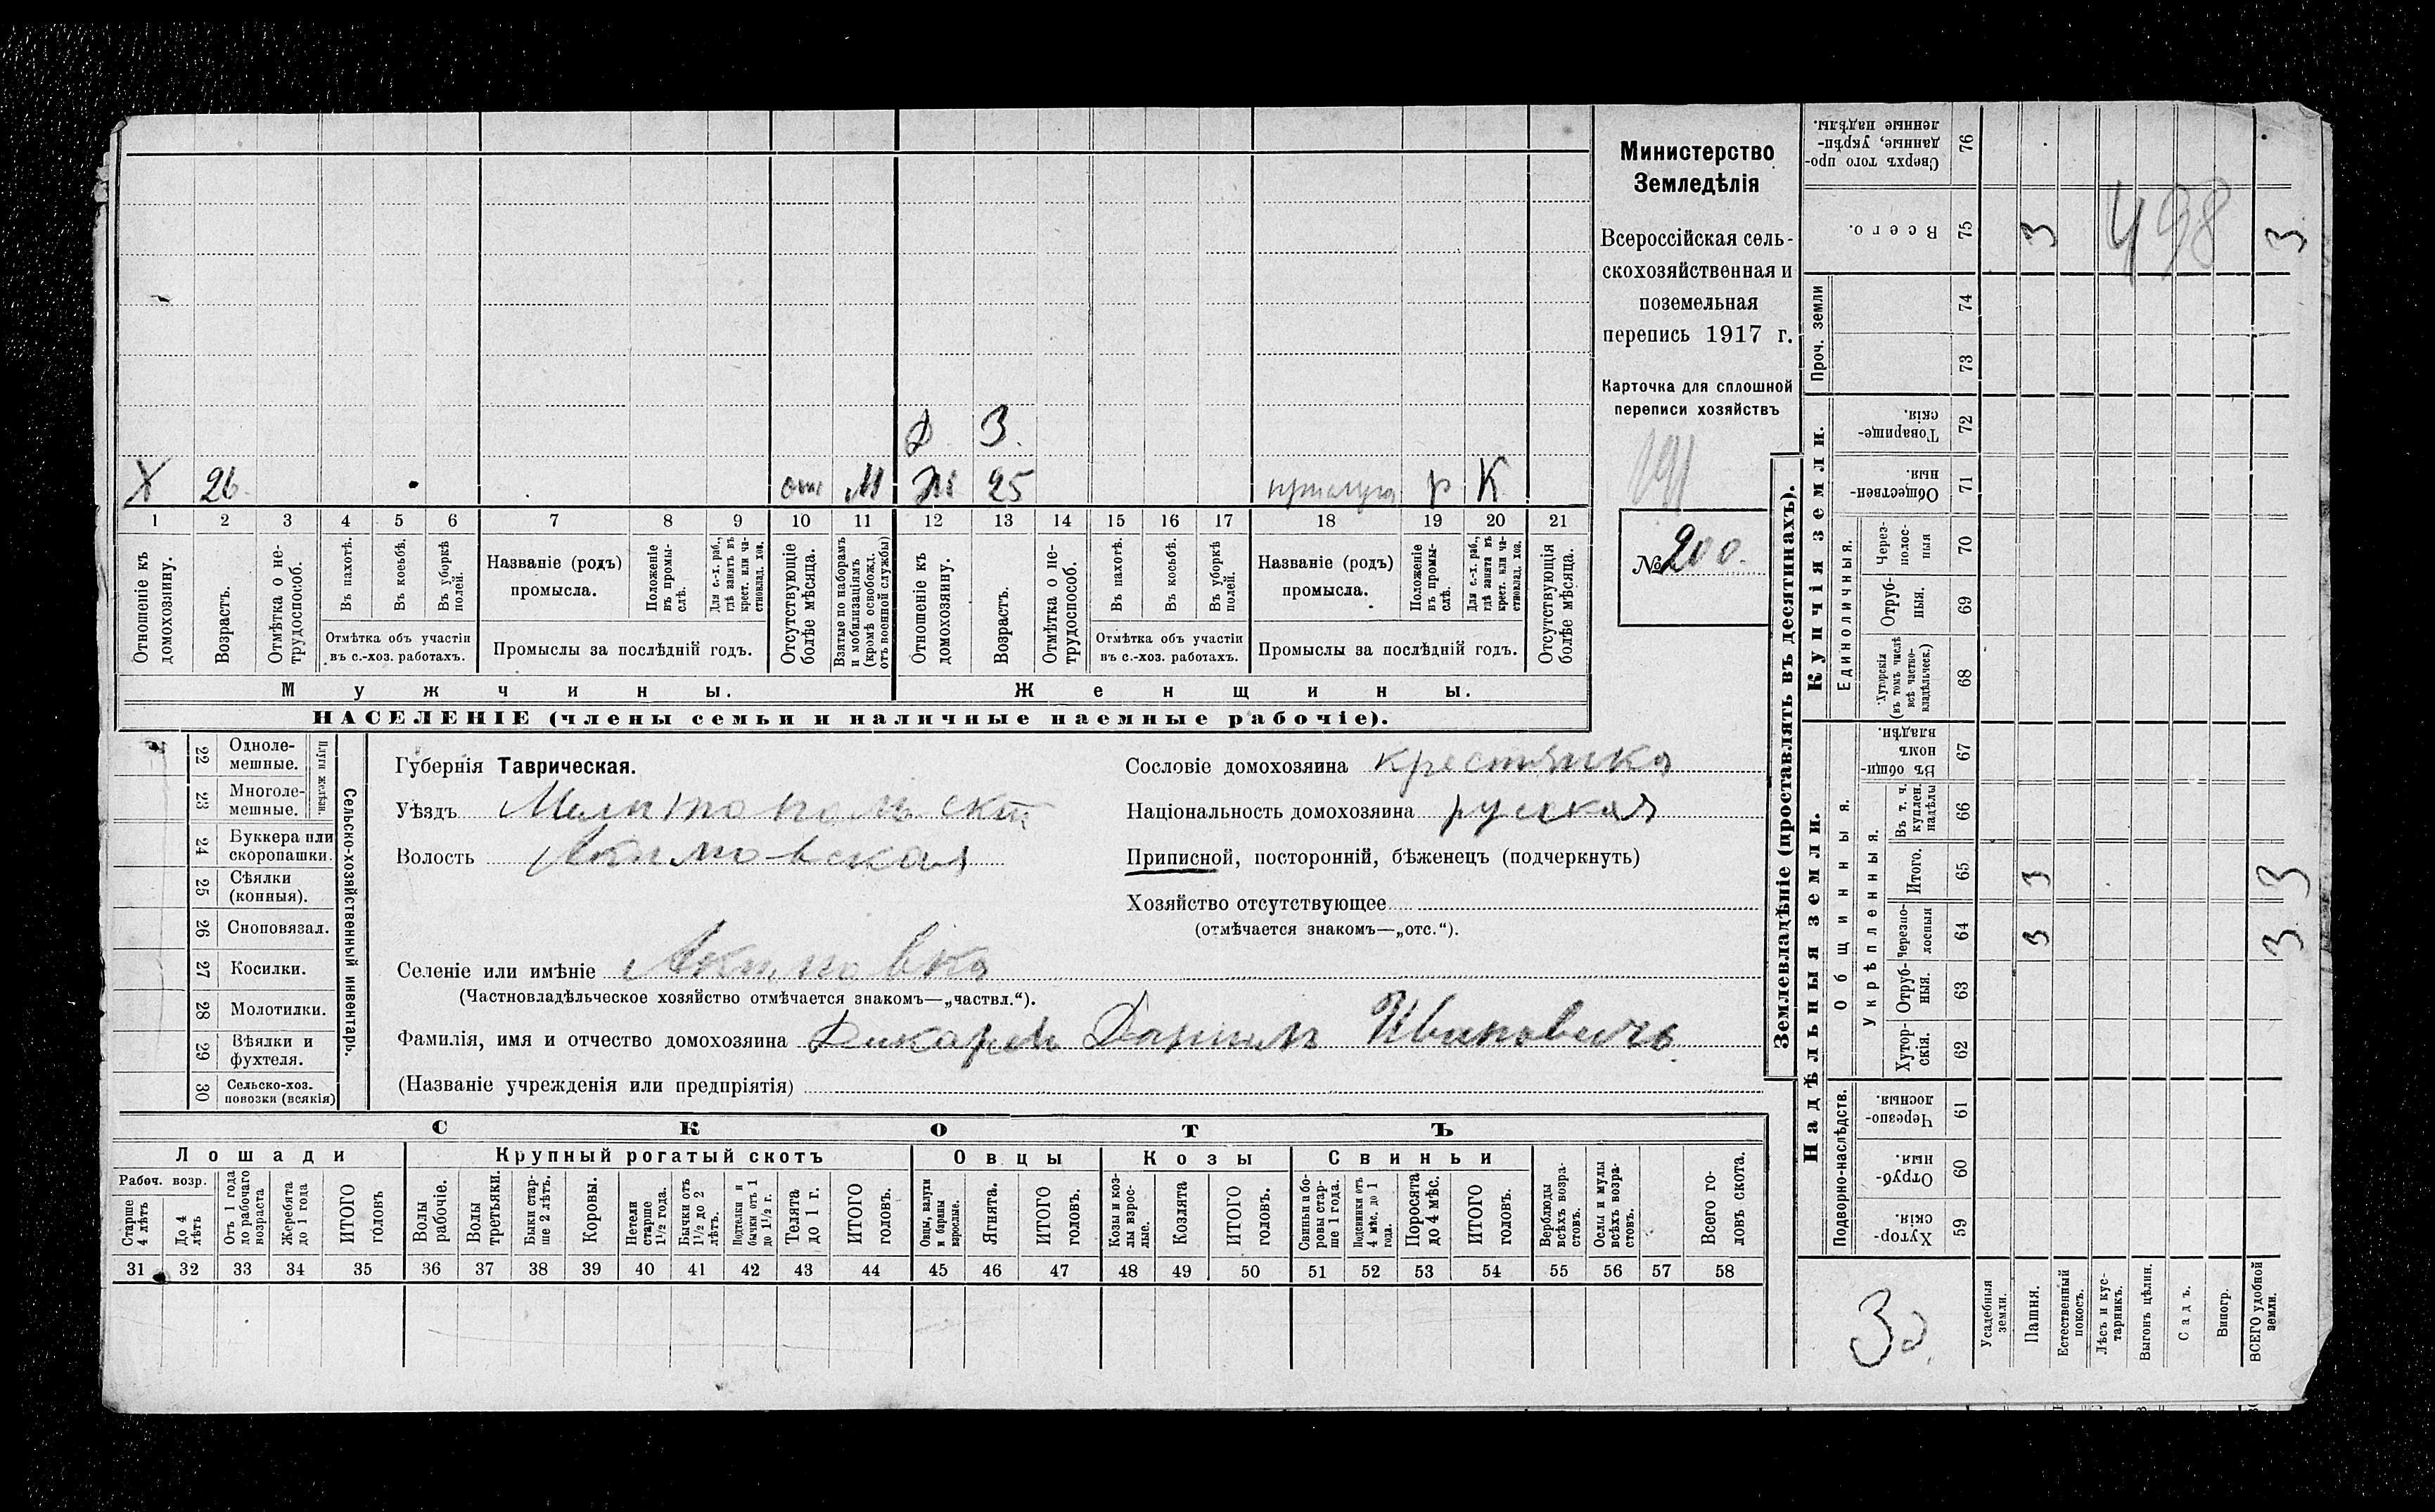 Д 3.
Х 26 отс М Ж 25 прислуга р К
1 2 3 4 5 6 7 8 9 10 11 12 13 14 15 16 17 18 19 20 21
Отношеніе къ домохозяину.
Возрастъ.
Отмѣтка о не-трудоспособ.
Въ пахотѣ.
Въ косьбѣ.
Въ уборкѣ полей.
Отмѣтка объ участіи
въ с.-хоз. работахъ.
Названіе (родъ)
промысла.
Положеніе въ промы-слѣ.
Для с.-х. раб., гдѣ занятъ въ крест. или ча-стновлад. хоз.
Промыслы за послѣдній годъ.
Отсутствующіе болѣе мѣсяца.
Взятые по наборамъ и мобилизаціямъ (кромѣ освобожд. отъ военной службы)
Отношеніе къ домохозяину.
Возрастъ.
Отмѣтка о не-трудоспособ.
Въ пахотѣ.
Въ косьбѣ.
Въ уборкѣ полей.
Отмѣтка объ участіи
въ с.-хоз. работахъ.
Названіе (родъ)
промысла.
Положеніе въ промы-слѣ.
Для с.-х. раб., гдѣ занята въ крест. или ча-стновлад. хоз.
Промыслы за послѣдній годъ.
Отсутствующія болѣе мѣсяца.
Мужчины.
Женщины.
НАСЕЛЕНІЕ (члены семьи и наличные наемные рабочіе).
Министерство
Земледѣлія
Всероссійская сель-
скохозяйственная и
поземельная
перепись 1917 г.
Карточка для сплошной
переписи хозяйствъ
191
№ 200.
22 Одноле-
мешные.
23 Многоле-
мешные.
Плуги желѣзн.
24 Буккера или
скоропашки.
25 Сѣялки
(конныя).
26 Сноповязал.
27 Косилки.
28 Молотилки.
29 Вѣялки и
фухтеля.
30 Сельско-хоз.
повозки (всякія)
Сельско-хозяйственный инвентарь.
Губернія Таврическая.
Уѣздъ Мелитопольскій
Волость Акимовская
Селеніе или имѣніе Акимовка
(Частновладѣльческое хозяйство отмѣчается знакомъ—„частвл.“).
Фамилія, имя и отчество домохозяина Дикаревъ Даніилъ Ивановичъ.
(Названіе учрежденія или предпріятія)
Сословіе домохозяина крестьянка
Національность домохозяина русская
Приписной, посторонній, бѣженецъ (подчеркнуть)
Хозяйство отсутствующее
(отмѣчается знакомъ—„отс.“).
СКОТЪ
Лошади
Крупный рогатый скотъ
Овцы
Козы
Свиньи
Рабоч. возр.
Старше 4 лѣтъ
До 4 лѣтъ
Отъ 1 года до рабочаго возраста
Жеребята до 1 года
ИТОГО головъ
Волы рабочіе.
Волы третьяки.
Быки стар-ше 2 лѣтъ.
Коровы.
Нетели старше 1½ года.
Бычки отъ 1½ до 2 лѣтъ.
Подтелки и бычки отъ 1 до 1½ г.
Телята до 1 г.
ИТОГО головъ.
Овцы, валухи и бараны взрослые.
Ягнята.
ИТОГО головъ.
Козы и коз-лы взрос-лые.
Козлята
ИТОГО головъ.
Свиньи и бо-ровы стар-ше 1 года.
Подсвинки отъ 4 мѣс. до 1 года.
Поросята до 4 мѣс.
ИТОГО головъ.
Верблюды всѣхъ возра-стовъ.
Ослы и мулы всѣхъ возра-стовъ.
Всего го-ловъ скота.
31 32 33 34 35 36 37 38 39 40 41 42 43 44 45 46 47 48 49 50 51 52 53 54 55 56 57 58
Землевладѣніе (проставлять въ десятинахъ).
Надѣльныя земли.
Купчія земли.
Проч. земли
Подворно-наслѣдств.
Общинныя.
Укрѣпленныя.
Единоличныя.
Сверхъ того про-данные, укрѣп-ленные надѣлы. 76
Всего. 75 3 498 3
74
73
Товарище-скія. 72
Обществен-ныя. 71
Через-полос-ныя 70
Отруб-ныя. 69
Хуторскія (въ томъ числѣ всѣ частно-владѣльческ.) 68
Въ общин-номъ владѣн. 67
Въ т. ч. куплен. надѣлы 66
Итого. 65 3 3
Черезпо-лосныя 64 3 3
Отруб-ныя. 63
Хутор-скія. 62
Черезпо-лосныя. 61
Отруб-ныя. 60
Хутор-скія. 59
Усадебныя земли.
Пашня.
Естественный покосъ.
Лѣсъ и кус-тарникъ.
Выгонъ цѣлин.
Садъ.
Виногр.
ВСЕГО удобной земли.